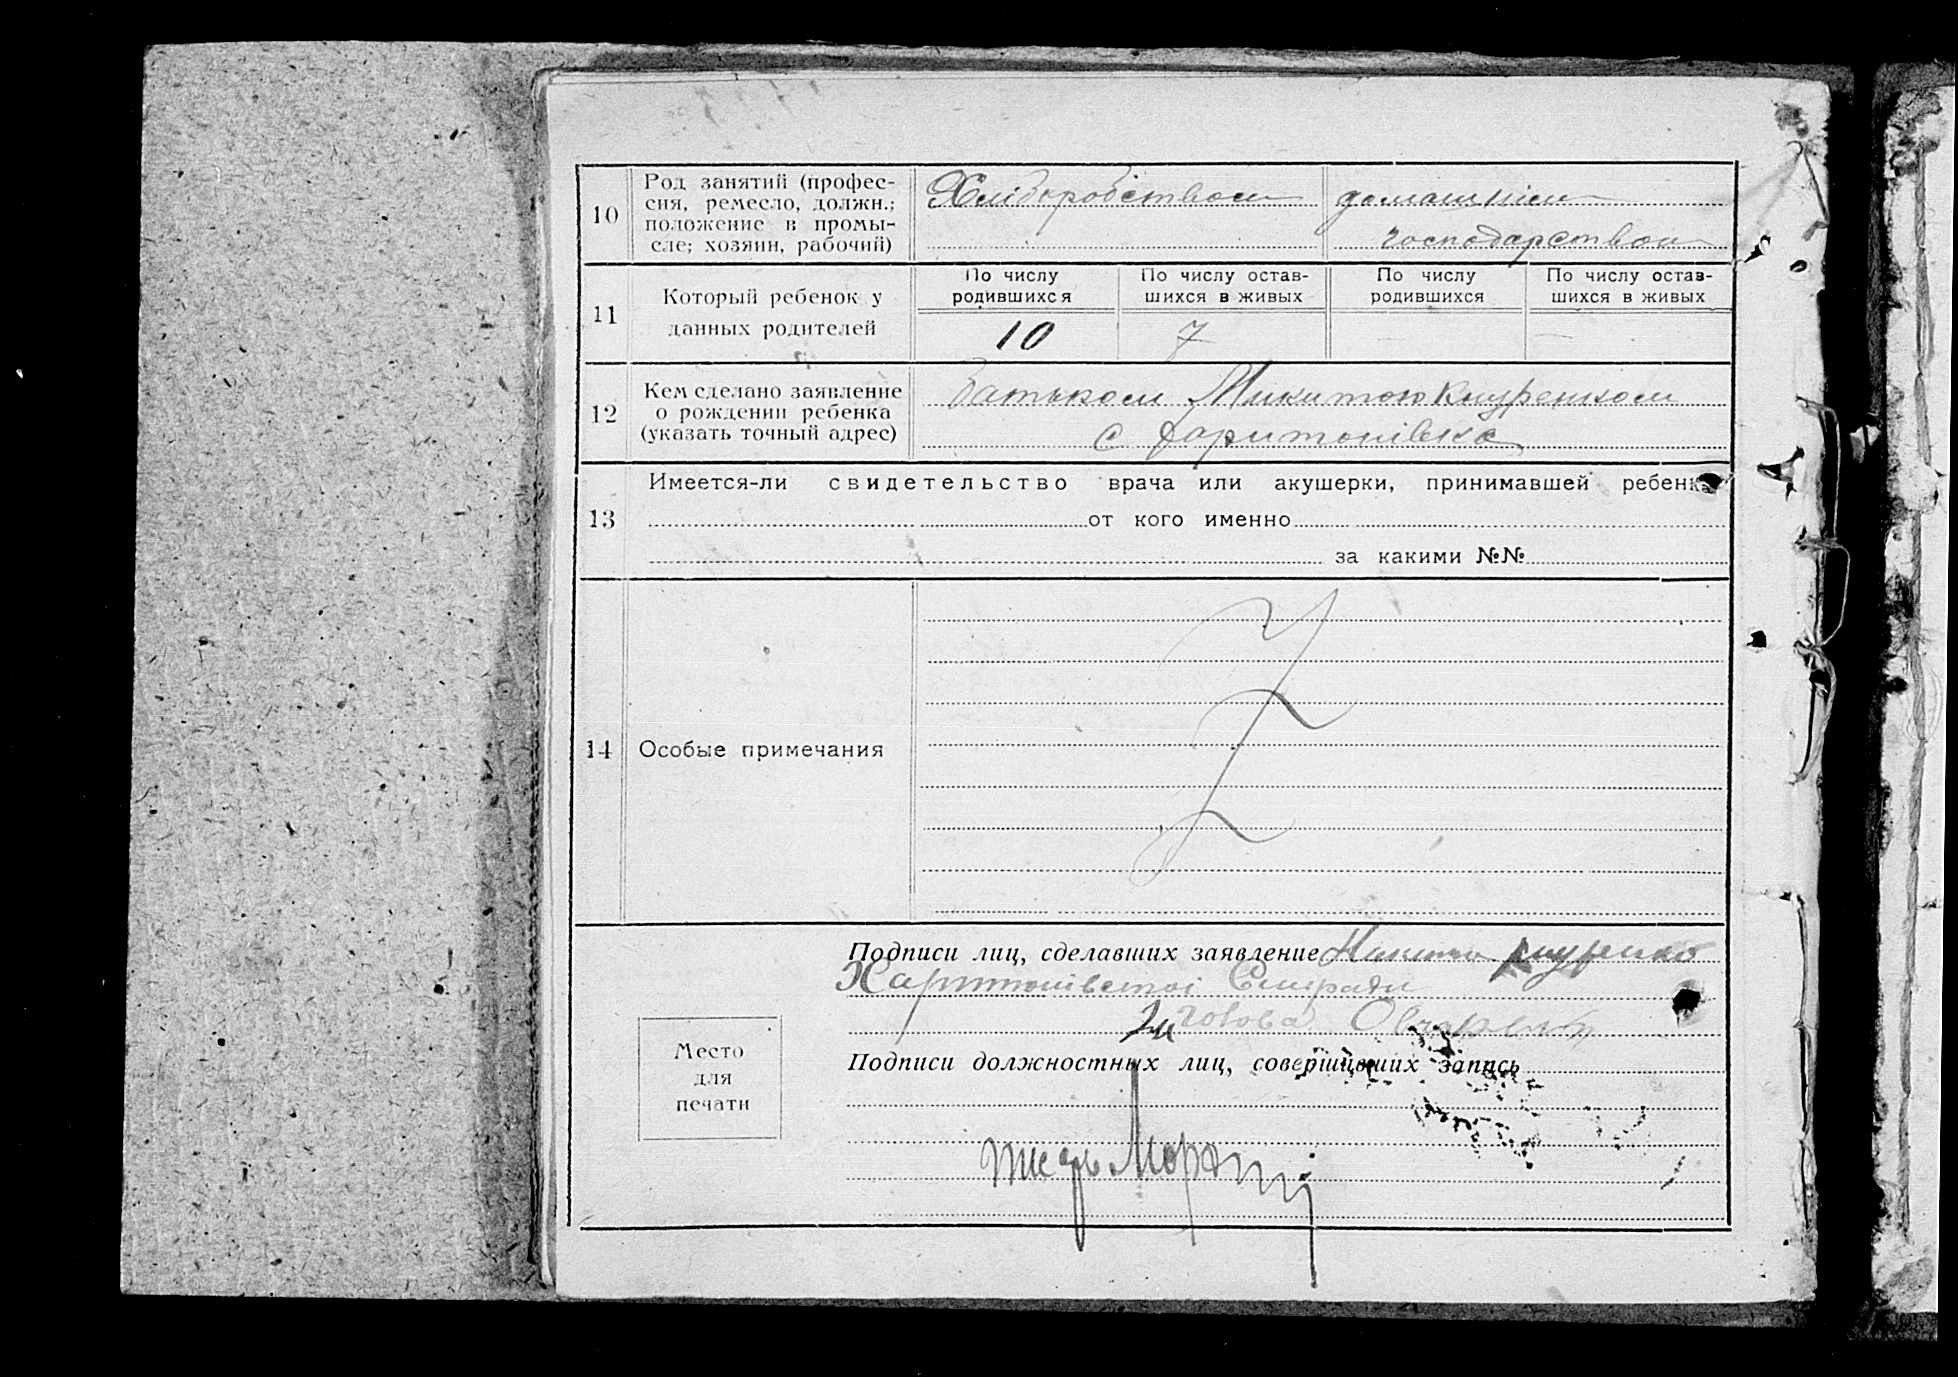 10
Род занятий (профес-
сия, ремесло, должн.;
положение в промы-
сле; хозяин, рабочий)
Хліборобством
домашнім
господарством
11
Который ребенок у
данных родителей
По числу
родившихся
По числу остав-
шихся в живых
По числу
родившихся
По числу остав-
шихся в живых
10
7
—
—
12
Кем сделано заявление
о рождении ребенка
(указать точный адрес)
Батьком Микитою Кнуренком
с Харитонівка
13
Имеется-ли свидетельство врача или акушерки, принимавшей ребенка
от кого именно
за какими №№
14
Особые примечания
Подписи лиц, сделавших заявление Микита Кнуренко
Харитонівської Сельради
Голова
Место
для
печати
Подписи должностных лиц, совершивших запись